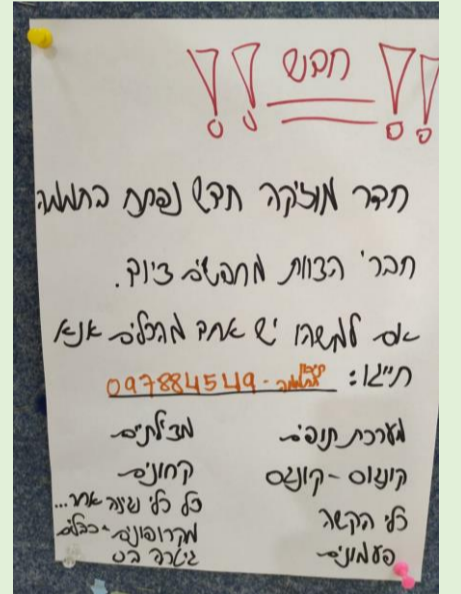 !! חדש !!
חדר מוזיקה חדש נפתח בחממה
חברי הצוות מחפשים ציוד.
אם למישהו יש אחד מהכלים אנא
חייגו: חממה - 097884549
מערכת תופים
קונגוס - קונגס
כלי הקשה
פעמונים
מצילתיים
קחונים
כל כלי נגינה אחר...
מקרופונים - כבלים
גיטרה בס